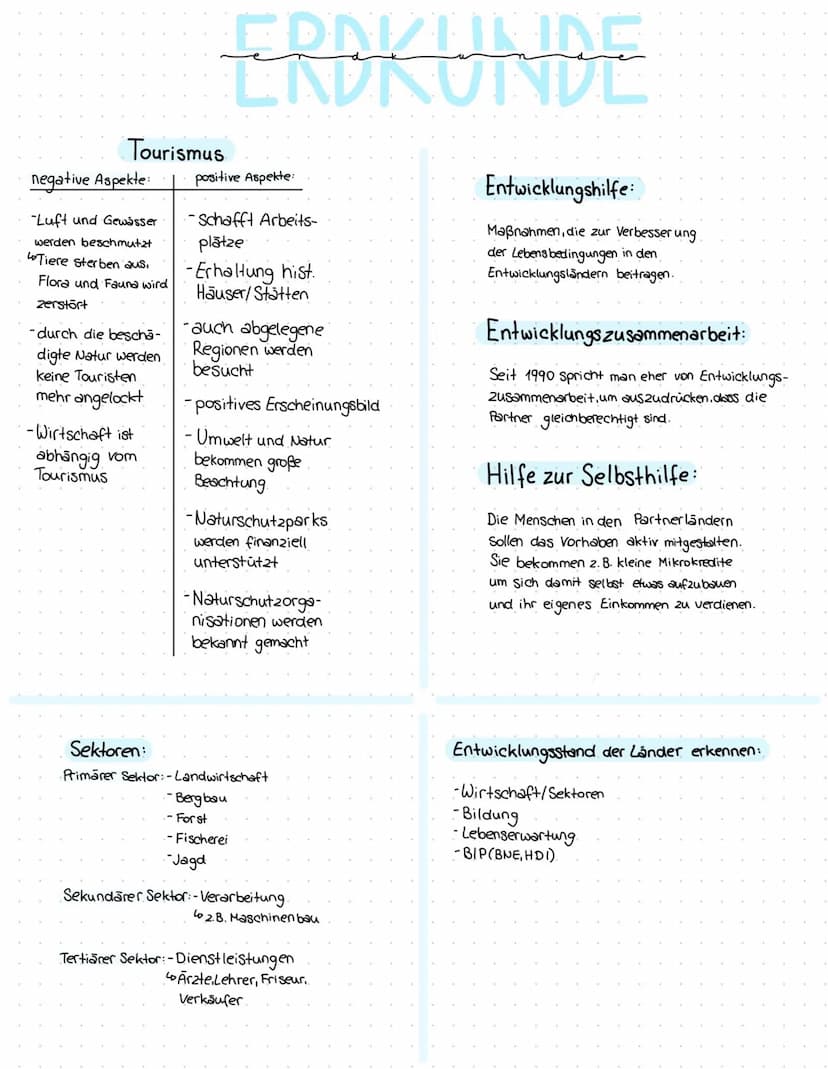 ERDKUNDE
erdkunde
Tourismus
negative Aspekte:
-Luft und Gewässer
werden beschmutzt
↳Tiere sterben aus,
Flora und Fauna wird
zerstört
-durch die beschä-
digte Natur werden
keine Touristen
mehr angelockt
-Wirtschaft ist
abhängig vom
Tourismus
positive Aspekte:
-schafft Arbeits-
plätze
-Erhaltung hist.
Häuser/Stätten
-auch abgelegene
Regionen werden
besucht
-positives Erscheinungsbild
-Umwelt und Natur
bekommen große
Beachtung
-Naturschutzparks
werden finanziell
unterstützt
-Naturschutzorga-
nisationen werden
bekannt gemacht
Entwicklungshilfe:
Maßnahmen, die zur Verbesserung
der Lebensbedingungen in den
Entwicklungsländern beitragen.
Entwicklungszusammenarbeit:
Seit 1990 spricht man eher von Entwicklungs-
zusammenarbeit, um auszudrücken, dass die
Partner gleichberechtigt sind.
Hilfe zur Selbsthilfe:
Die Menschen in den Partnerländern
sollen das Vorhaben aktiv mitgestalten.
Sie bekommen z.B. kleine Mikrokredite
um sich damit selbst etwas aufzubauen
und ihr eigenes Einkommen zu verdienen.
Sektoren:
Primärer Sektor:-Landwirtschaft
-Bergbau
-Forst
-Fischerei
-Jagd
Sekundärer Sektor:-Verarbeitung
↳z.B. Maschinenbau
Tertiärer Sektor:-Dienstleistungen
↳Ärzte, Lehrer, Friseur,
Verkäufer
Entwicklungsstand der Länder erkennen:
-Wirtschaft/Sektoren
-Bildung
-Lebenserwartung
-BIP(BNE, HDI)